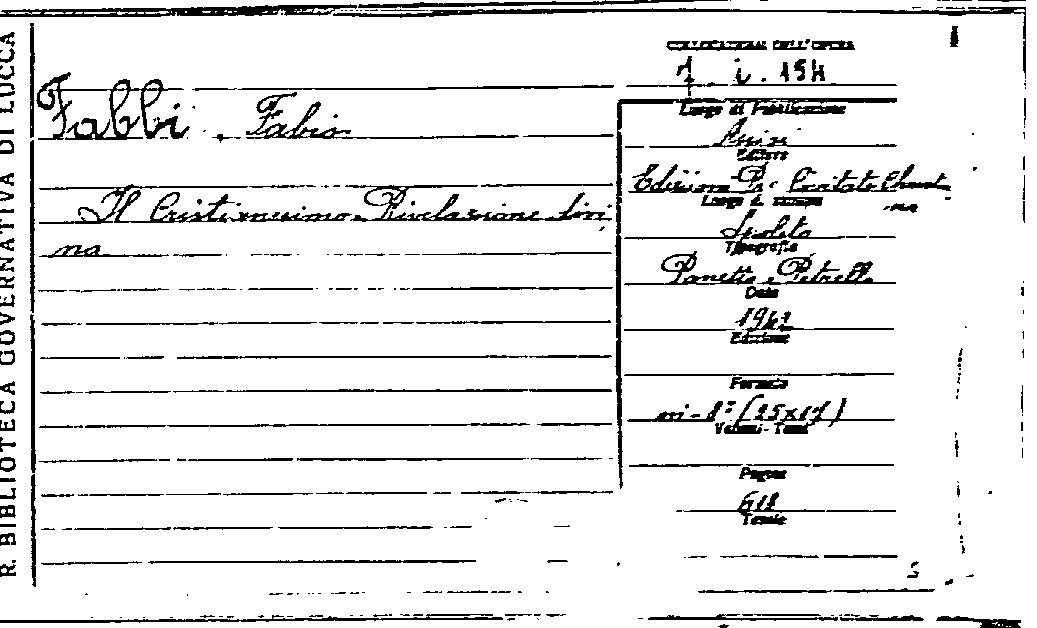 R. BIBLIOTECA GOVERNATIVA DI LUCCA
COLLOCAZIONE DELL'OPERA
i. 154
Fabbi, Fabio
Il Cristianesimo Rivelazione divi
na
Luogo di Pubblicazione
Assisi
Editore
Edizioni Pro Civitate Christia
na
Luogo di stampa
Spoleto
Tipografia
Panetto e Petrelli
Data
1942
Edizione
Formato
in-8º (25x17)
Volumi-Tomi
Pagine
618
Tavole